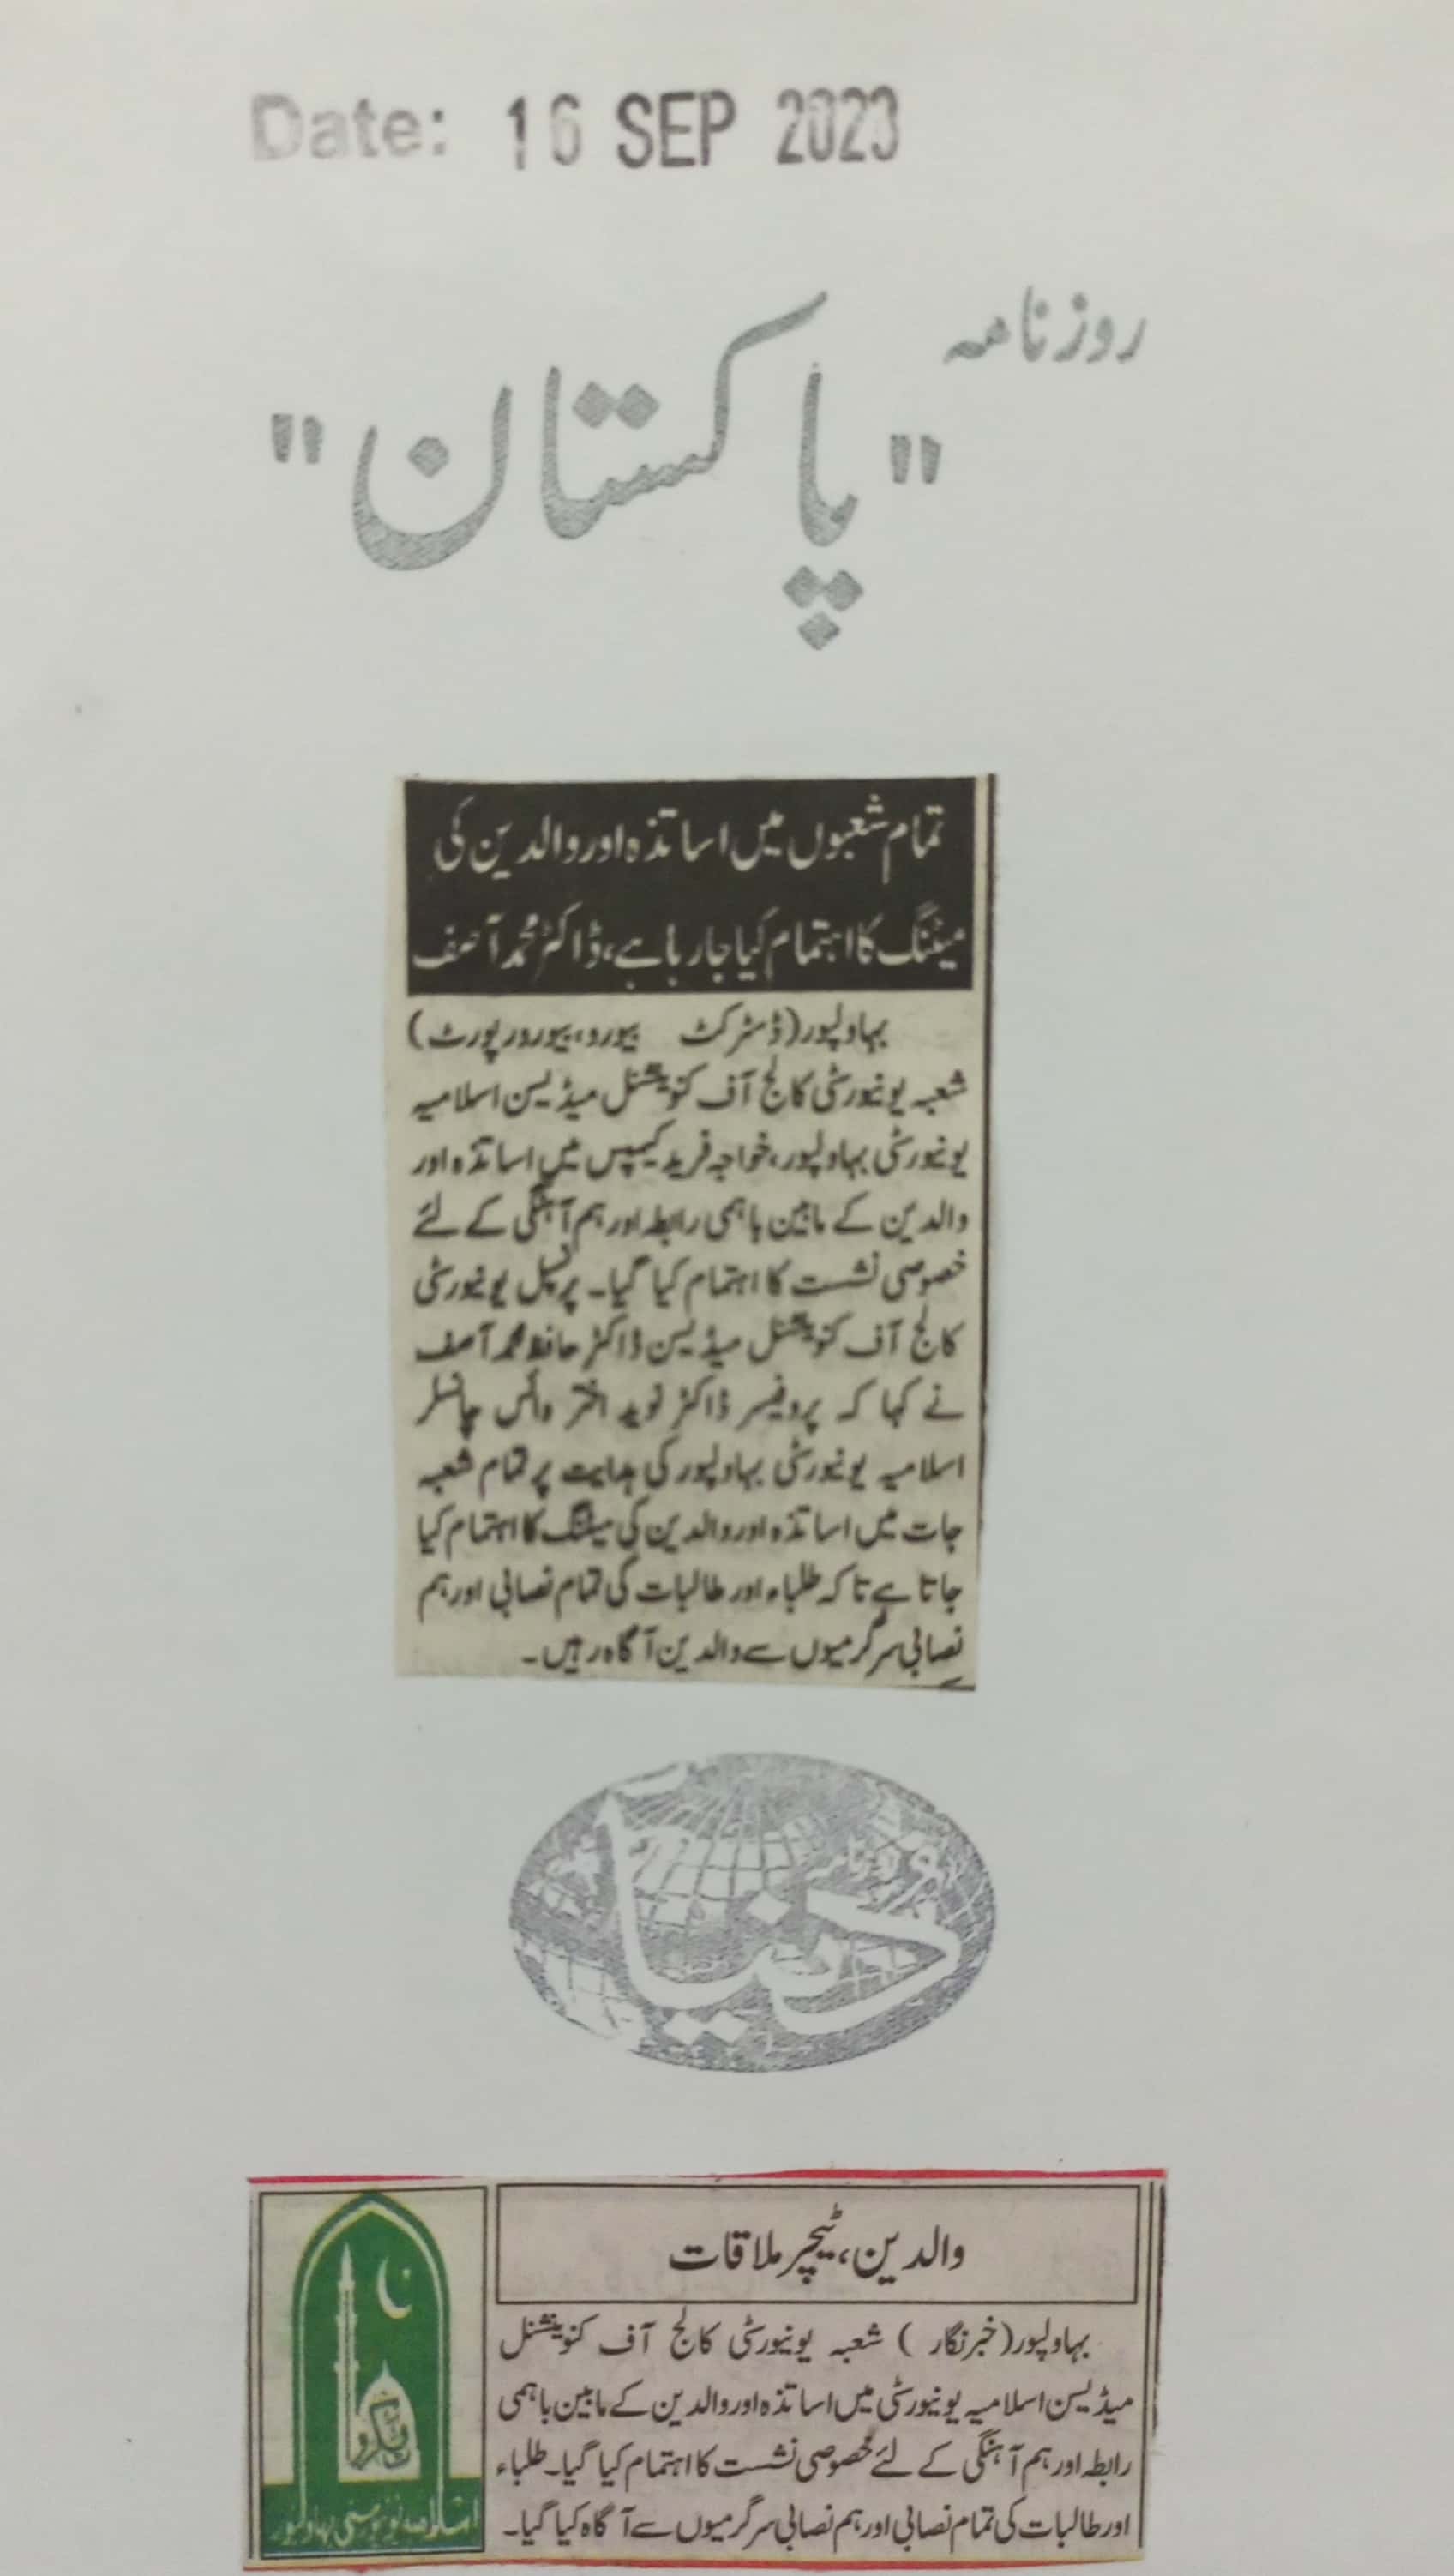 Date: 16 SEP 2023
روزنامہ
"پاکستان"
تمام شعبوں میں اساتذہ اور والدین کی
میٹنگ کا اہتمام کیا جا رہا ہے، ڈاکٹر محمد آصف
بہاولپور (ڈسٹرکٹ بیورو، بیورو رپورٹ)
شعبہ یونیورسٹی کالج آف کنوینشنل میڈیسن اسلامیہ
یونیورسٹی بہاولپور، خواجہ فرید کیمپس میں اساتذہ اور
والدین کے مابین باہمی رابطہ اور ہم آہنگی کے لئے
خصوصی نشست کا اہتمام کیا گیا۔ پرنسپل یونیورسٹی
کالج آف کنوینشنل میڈیسن ڈاکٹر حافظ محمد آصف
نے کہا کہ پروفیسر ڈاکٹر نوید اختر وائس چانسلر
اسلامیہ یونیورسٹی بہاولپور کی ہدایت پر تمام شعبہ
جات میں اساتذہ اور والدین کی میٹنگ کا اہتمام کیا
جاتا ہے تاکہ طلباء اور طالبات کی تمام نصابی اور ہم
نصابی سرگرمیوں سے والدین آگاہ رہیں۔
روزنامہ
دنیا
والدین، ٹیچر ملاقات
بہاولپور (خبرنگار) شعبہ یونیورسٹی کالج آف کنوینشنل
میڈیسن اسلامیہ یونیورسٹی میں اساتذہ اور والدین کے مابین باہمی
رابطہ اور ہم آہنگی کے لئے خصوصی نشست کا اہتمام کیا گیا۔ طلباء
اور طالبات کی تمام نصابی اور ہم نصابی سرگرمیوں سے آگاہ کیا گیا۔
اسلامیہ یونیورسٹی بہاولپور